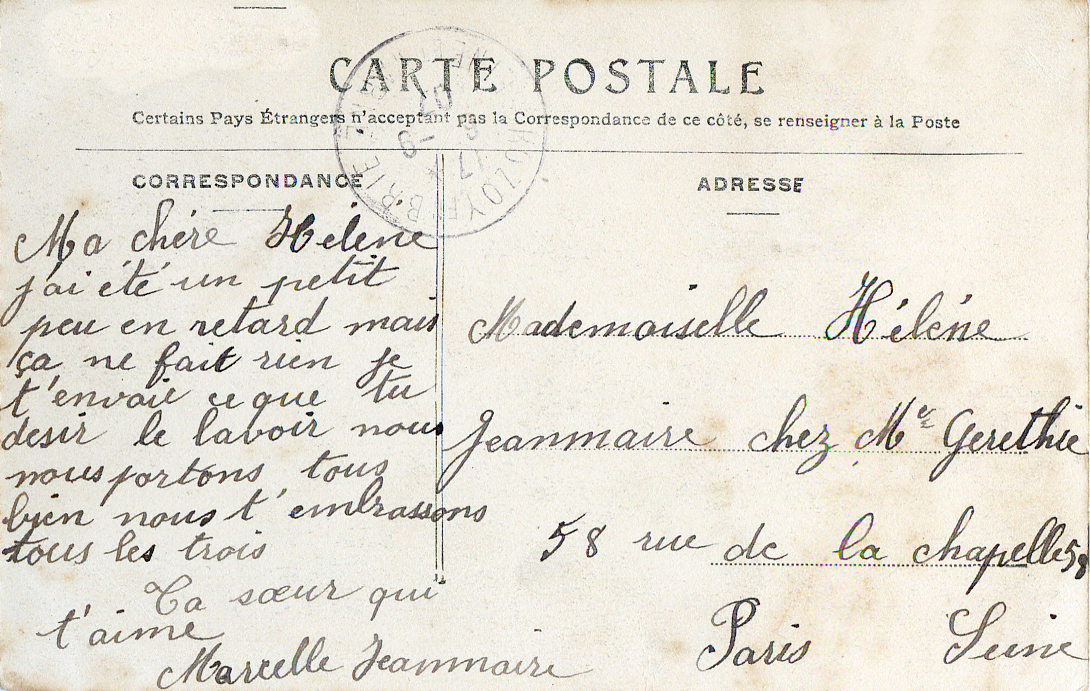 CARTE POSTALE
Certains Pays Étrangers n'acceptant pas la Correspondance de ce côté, se renseigner à la Poste
CORRESPONDANCE
Ma chére Héléne
j'ai été un petit
peu en retard mais
ça ne fait rien je
t'envoie ce que tu
desir le lavoir nous
nous portons tous
bien nous t'embrassons
tous les trois
Ta sœur qui
t'aime
Marcelle Jeanmaire
ADRESSE
Mademoiselle Héléne
Jeanmaire chez Me Gerethie
58 rue de la chapelle 58
Paris Seine
ROZOY BRIE
17 - 9
07